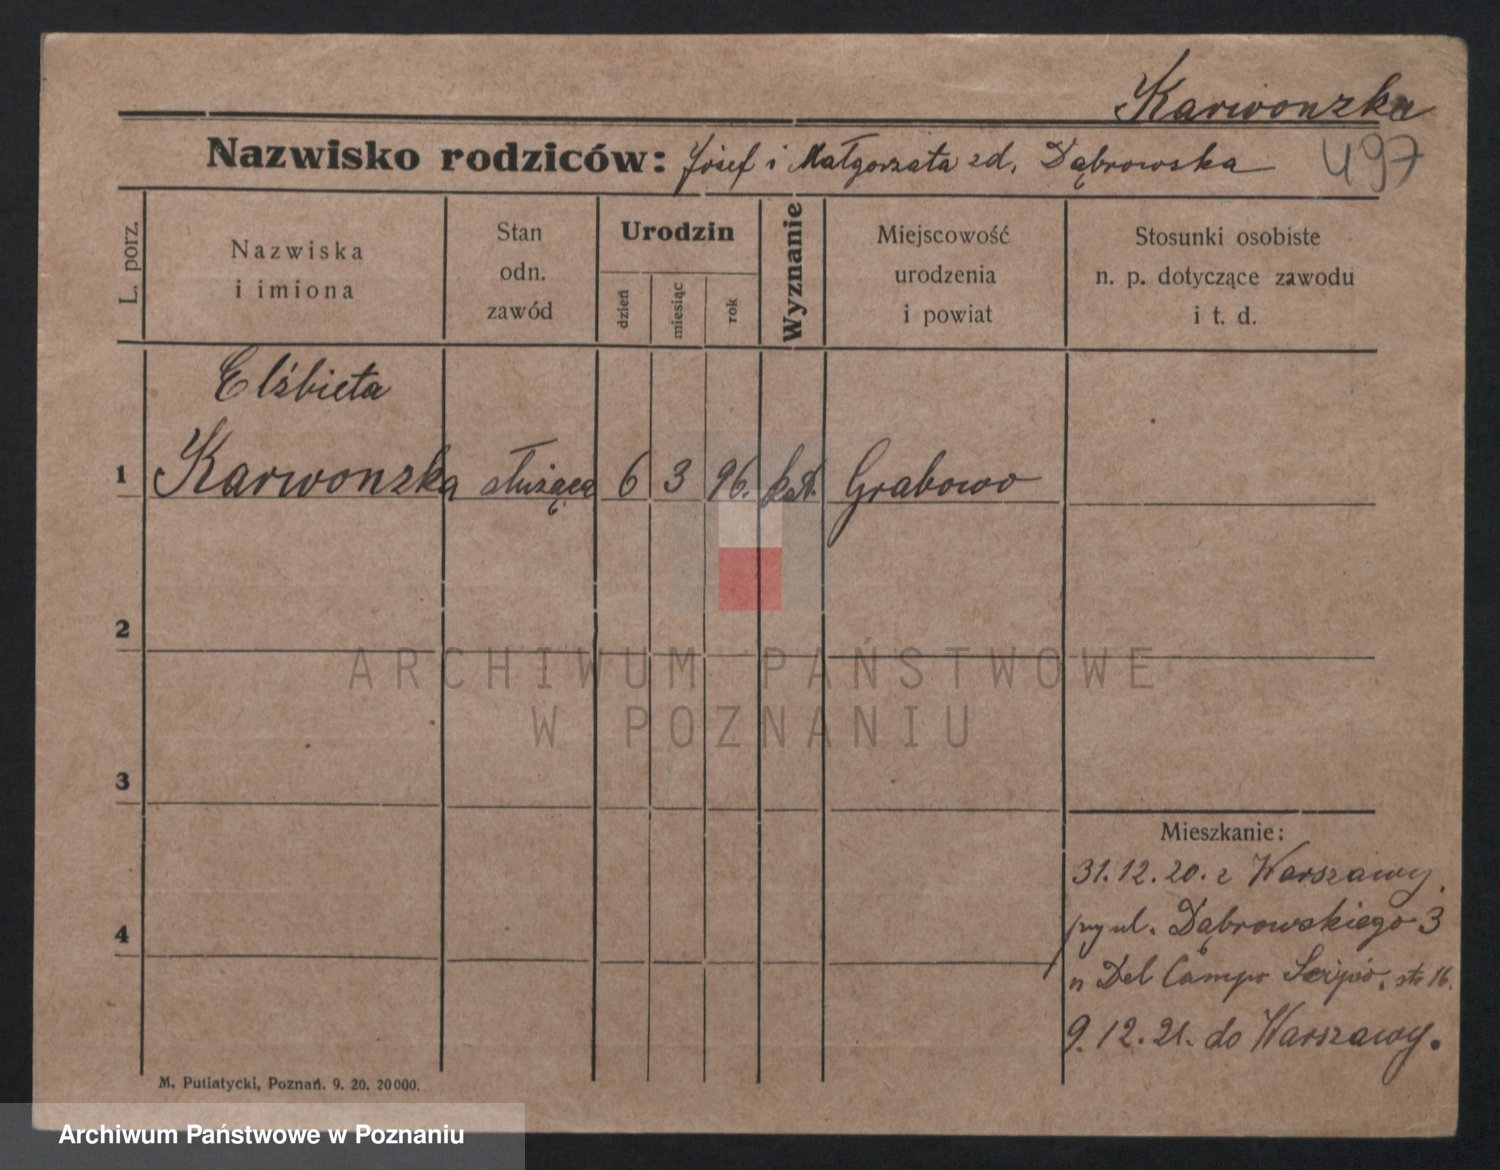 Karwonzka
Nazwisko rodziców: Józef i Małgorzata zd. Dąbrowska
497
L. porz.
Nazwiska
i imiona
Stan
odn.
zawód
Urodzin
dzień
miesiąc
rok
Wyznanie
Miejscowość
urodzenia
i powiat
Stosunki osobiste
n. p. dotyczące zawodu
i t. d.
Elżbieta
1 Karwonzka służąca 6 3 96. kat. Grabowo
2
3
4
Mieszkanie:
31.12.20. z Warszawy.
ul. Dąbrowskiego 3
Del Campo str 16.
9.12.21. do Warszawy.
M. Putiatycki, Poznań. 9. 20. 20000.
ARCHIWUM PAŃSTWOWE
W POZNANIU
Archiwum Państwowe w Poznaniu